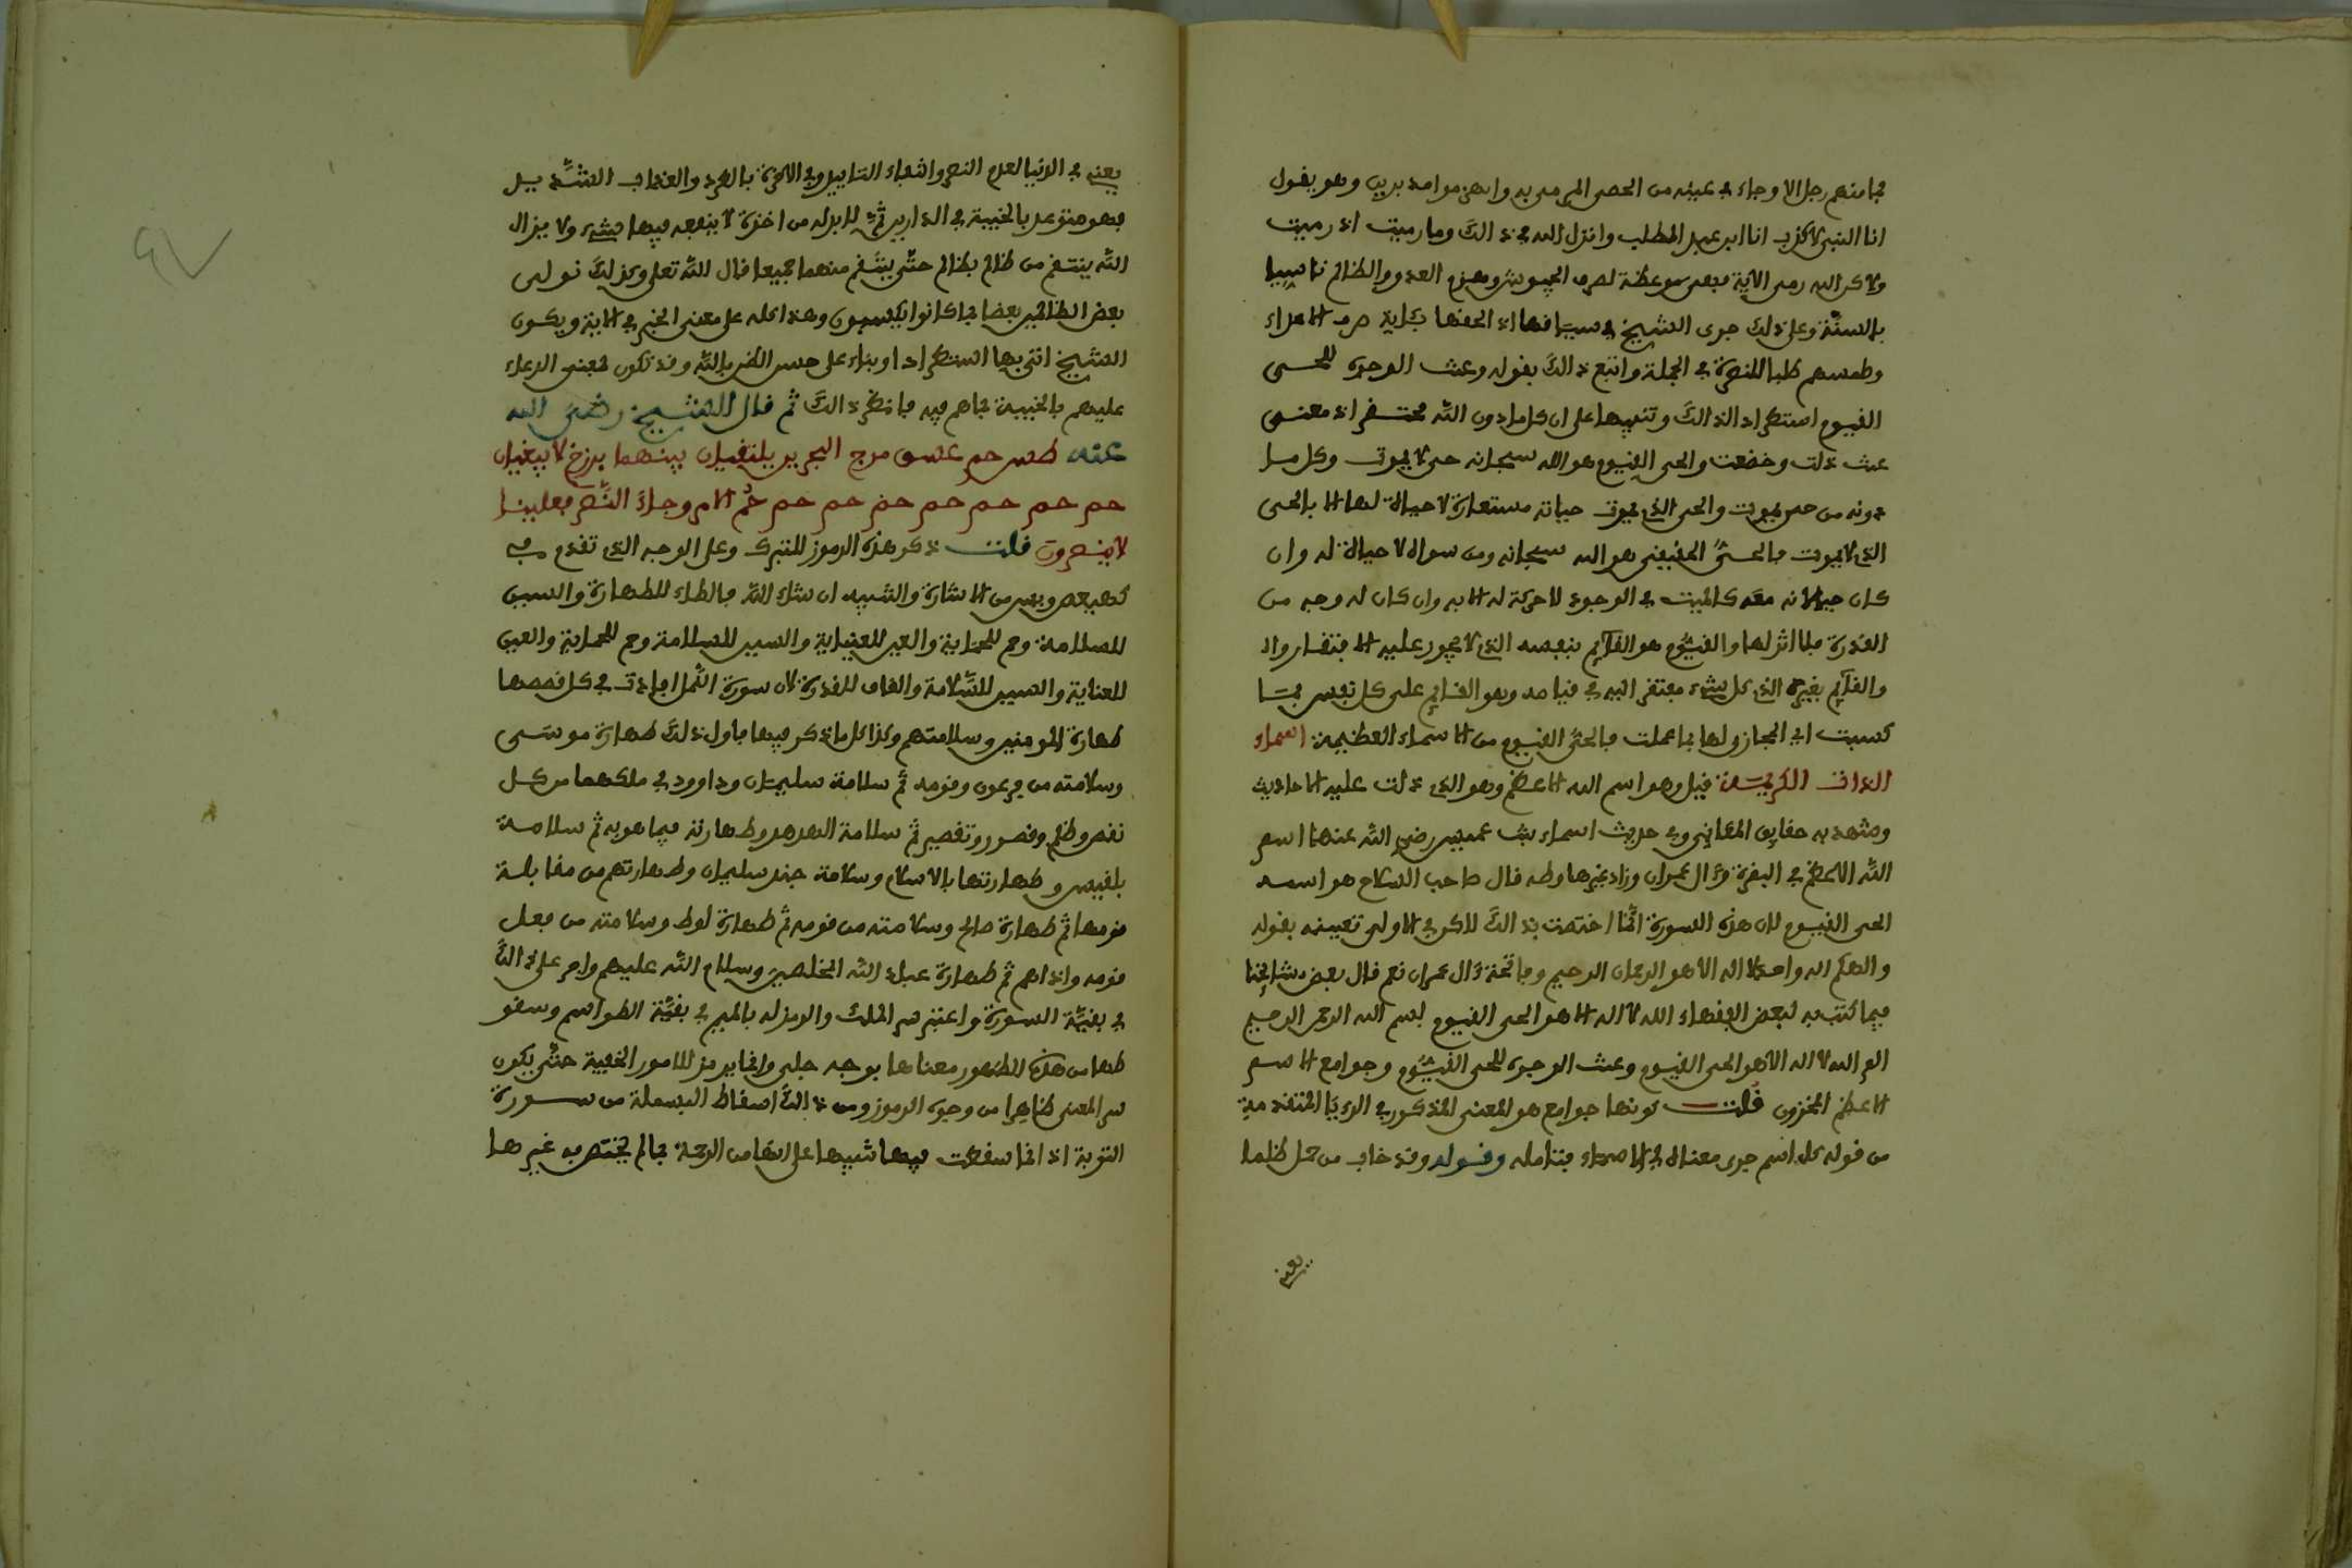 فما منهم رجل الا وجاء في عينه من الحصى الذي رمى به وانهزموا مدبرين وهو يقول
انا النبي لا كذب انا ابن عبد المطلب وانزل الله في ذالك وما رميت اذ رميت
ولاكن الله رمى الاية فبقى موعظة لصرف الجيوش وهزم العدو والظالم تاسيا
بالسنة وعلى ذلك جرى الشيخ في سياقها اذ الحقها بكاية صرف الاعداء
وطمسهم طلبا للنصرة في الجملة واتبع ذالك بقوله وعنت الوجوه للحي
القيوم استطرادا لذالك وتنبيها على ان كل ما دون الله مفتقر اذ معنى
عنت ذلت وخضعت والحي القيوم هو الله سبحانه حي لا يموت وكل ما
دونه من حي يموت والحي الذي يموت حياته مستعارة لا حياة لها الا بالحي
الذي لا يموت فالحي الحقيقي هو الله سبحانه ومن سواه لا حياة له وان
كان حيا لانه معه كالميت في الوجود لا حركة له الا به وان كان له وجه من
القدرة فلا اثر لها والقيوم هو القايم بنفسه الذي لا يجوز عليه الافتقار
والقايم بغيره الذي كل شيء مفتقر اليه في قيامه وهو القايم على كل نفس بما
كسبت اي المجاز لها بما عملت فالحي القيوم من الاسماء العظيمة اسماء
الذات الكريمة قيل وهو اسم الله الاعظم وهو الذي دلت عليه الاحاديث
وشهد به حقايق المعاني وفي حديث اسماء بنت عميس رضي الله عنها اسم
الله الاعظم في البقرة وءال عمران وزاد غيرها وطه قال صاحب السلاح هو اسمه
الحي القيوم لان هذه السورة انما اختصت بذالك لاكن في الاولى تعيينه بقوله
والهكم اله واحد لا اله الا هو الرحمان الرحيم وفاتحة ءال عمران نعم قال بعض مشايخنا
فيما كتب به لبعض الفقهاء الله لا اله الا هو الحي القيوم بسم الله الرحمن الرحيم
الم الله لا اله الا هو الحي القيوم وعنت الوجوه للحي القيوم وجوامع الاسم
الاعظم المخزون قلت كونها جوامع هو المعنى المذكور في الرءيا المتقدمة
من قوله كل اسم جرى معناه في الاسماء فتامله وقوله وقد خاب من حمل ظلما
يعني
يعني في الدنيا لعدم النصر وانتفاء التاييد وفي الاخرة بالطرد والعذاب الشديد
فهو متوعد بالخيبة في الدارين ثم لا بد له من اخذة لا ينفعه فيها شيء ولا يزال
الله ينتقم من ظالم بظالم حتى ينتقم منهما جميعا قال الله تعلى وكذلك نولي
بعض الظالمين بعضا بما كانوا يكسبون وهذا كله على معنى الخبر في الاية ويكون
الشيخ اتى بها استطرادا وبناء على حسن الظن بالله وقد تكون لمعنى الدعاء
عليهم بالخيبة مما هم فيه فانظر ذالك ثم قال الشيخ رضي الله
عنه طس حم عسق مرج البحرين يلتقيان بينهما برزخ لا يبغيان
حم حم حم حم حم حم حم حم الامر وجاء النصر فعلينا
لا ينصرون قلت ذكر هذه الرموز للتبرك وعلى الوجه الذي تقدم في
كهيعص وهي من الاشارة والتنبيه ان شاء الله فالطاء للطهارة والسين
للسلامة وحم للحماية والعين للعناية والسين للسلامة وحم للحماية والعين
للعناية والسين للسلامة والقاف للقدرة لان سورة النمل افادت في كل قصصها
طهارة المومنين وسلامتهم وكذا كل ما ذكر فيها فاول ذلك طهارة موسى
وسلامته من فرعون وقومه ثم سلامة سليمان وداوود في ملكهما من كل
نقص وظلم وقصور وتقصير ثم سلامة الهدهد وطهارته فيما هو به ثم سلامة
بلقيس وطهارتها بالاسلام وسلامة جند سليمان وطهارتهم من مقابلة
قومها ثم طهارة صالح وسلامته من قومه ثم طهارة لوط وسلامته من فعل
قومه واذاهم ثم طهارة عباد الله المخلصين وسلام الله عليهم وامر على ذالك
في بقية السورة واعتبر سر الملك والرمز له بالميم في بقية الطواسم وسقو
طها من هذه لظهور معناها بوجه جلي وانما يرمز للامور الخفية حتى يكون
سر المعنى ظاهرا من وجوه الرموز ومن ذالك اسقاط البسملة من سورة
التوبة اذ انما سقطت فيها تنبيها على انها من الرحمة بما لم يختص به غيرها